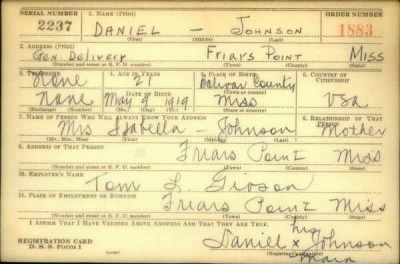 SERIAL NUMBER 1. NAME (Print) ORDER NUMBER
2237 DANIEL — JOHNSON 1883
(First) (Middle) (Last)
2. ADDRESS (Print)
Gen Delivery Friars Point Miss
(Number and street or R. F. D. number) (Town) (County) (State)
3. TELEPHONE 4. AGE IN YEARS 5. PLACE OF BIRTH 6. COUNTRY OF CITIZENSHIP
None 21 Bolivar County
DATE OF BIRTH
None May 9 1919 Miss USA
(Exchange) (Number) (Mo.) (Day) (Yr.) (State or country)
7. NAME OF PERSON WHO WILL ALWAYS KNOW YOUR ADDRESS 8. RELATIONSHIP OF THAT PERSON
Mrs Isabella — Johnson Mother
(Mr., Mrs., Miss) (First) (Middle) (Last)
9. ADDRESS OF THAT PERSON
Friars Point Miss
(Number and street or R. F. D. number) (Town) (County) (State)
10. EMPLOYER'S NAME
Tom L. Gibson
11. PLACE OF EMPLOYMENT OR BUSINESS
Friars Point Miss
(Number and street or R. F. D. number) (Town) (County) (State)
I AFFIRM THAT I HAVE VERIFIED ABOVE ANSWERS AND THAT THEY ARE TRUE.
his
REGISTRATION CARD Daniel x Johnson
D. S. S. Form 1 mark